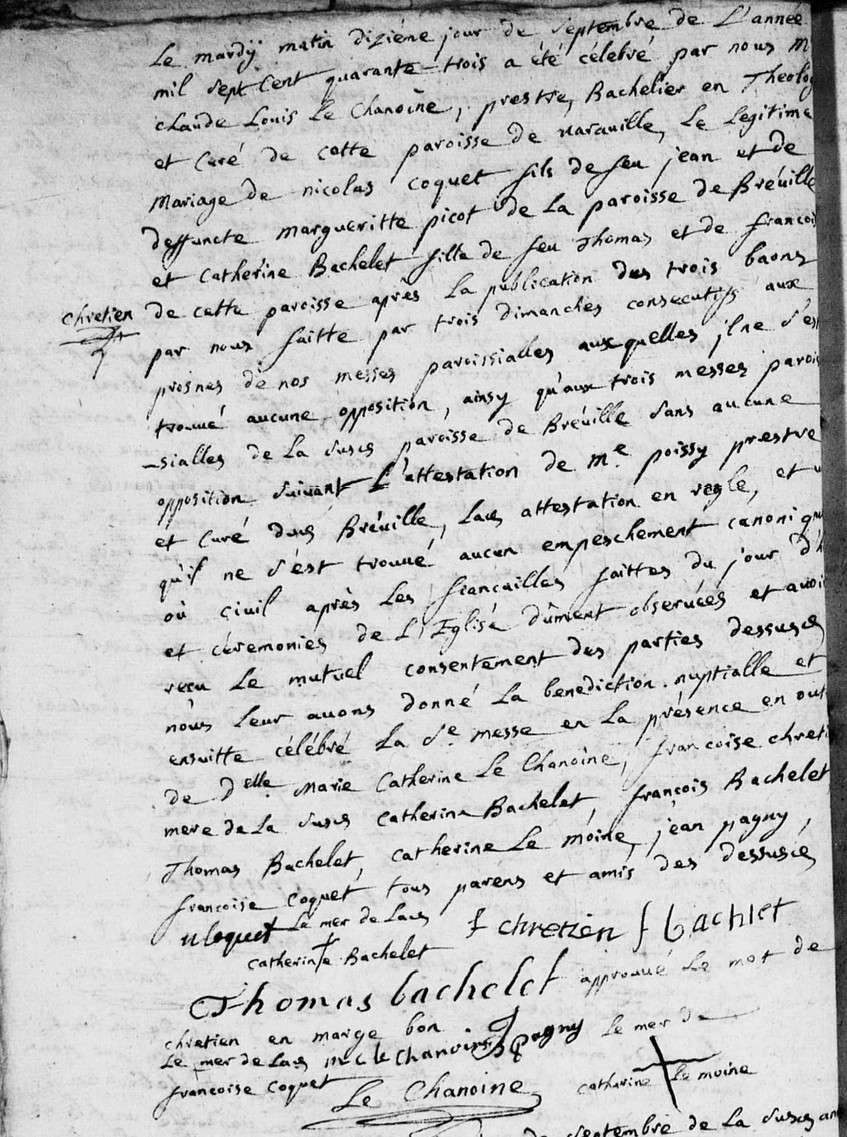 Le mardy matin diziéne jour de septembre de L'année
mil sept cent quarante-trois a été célebré par nous M
claude Louis Le Chanoine, prestre, Bachelier en Theolog
et Curé de cette paroisse de varauille, Le Legitime
Mariage de nicolas coquet fils de feu jean et de
deffuncte margueritte picot de La paroisse de Breuille
et Catherine Bachelet fille de feu Thomas et de françoi
chretien
de cette paroisse après La publication des trois bans
par nous faitte par trois dimanches consecutifs aux
prosnes de nos messes paroissialles auxquelles jl ne s'est
trouué aucune opposition, ainsy qu'aux trois messes parois
-sialles de La susd paroisse de Bréuille sans aucune
opposition suivant L'attestation de me poissy prestre
et Curé dud Bréuille, Lad attestation en regle, et
qu'il ne s'est trouué aucun empeschement canoniqu
où civil après Les fiancailles faittes du jour d'h
et céremonies de L'Eglise dûment obseruées et auoir
recu Le mutuel consentement des parties dessusd
nous Leur auons donné La benediction nuptialle et
ensuitte célébré La Ste messe en La présence en out
de Delle Marie Catherine Le Chanoine, francoise chreti
mere de La susd Catherine Bachelet, françois Bachelet
Thomas Bachelet, catherine Le moine, jean pagny,
francoise coquet, tous parens et amis des dessusd
n coquet Le mer de Lad f chretien f bachlet
Catherine Bachelet
Thomas bachelet approuué Le mot de
chretien en marge bon J pagny Le mer de
Le mer de Lad m c le Chanoine
francoise coquet Le Chanoine catherine Le moine
de septembre de La susd an